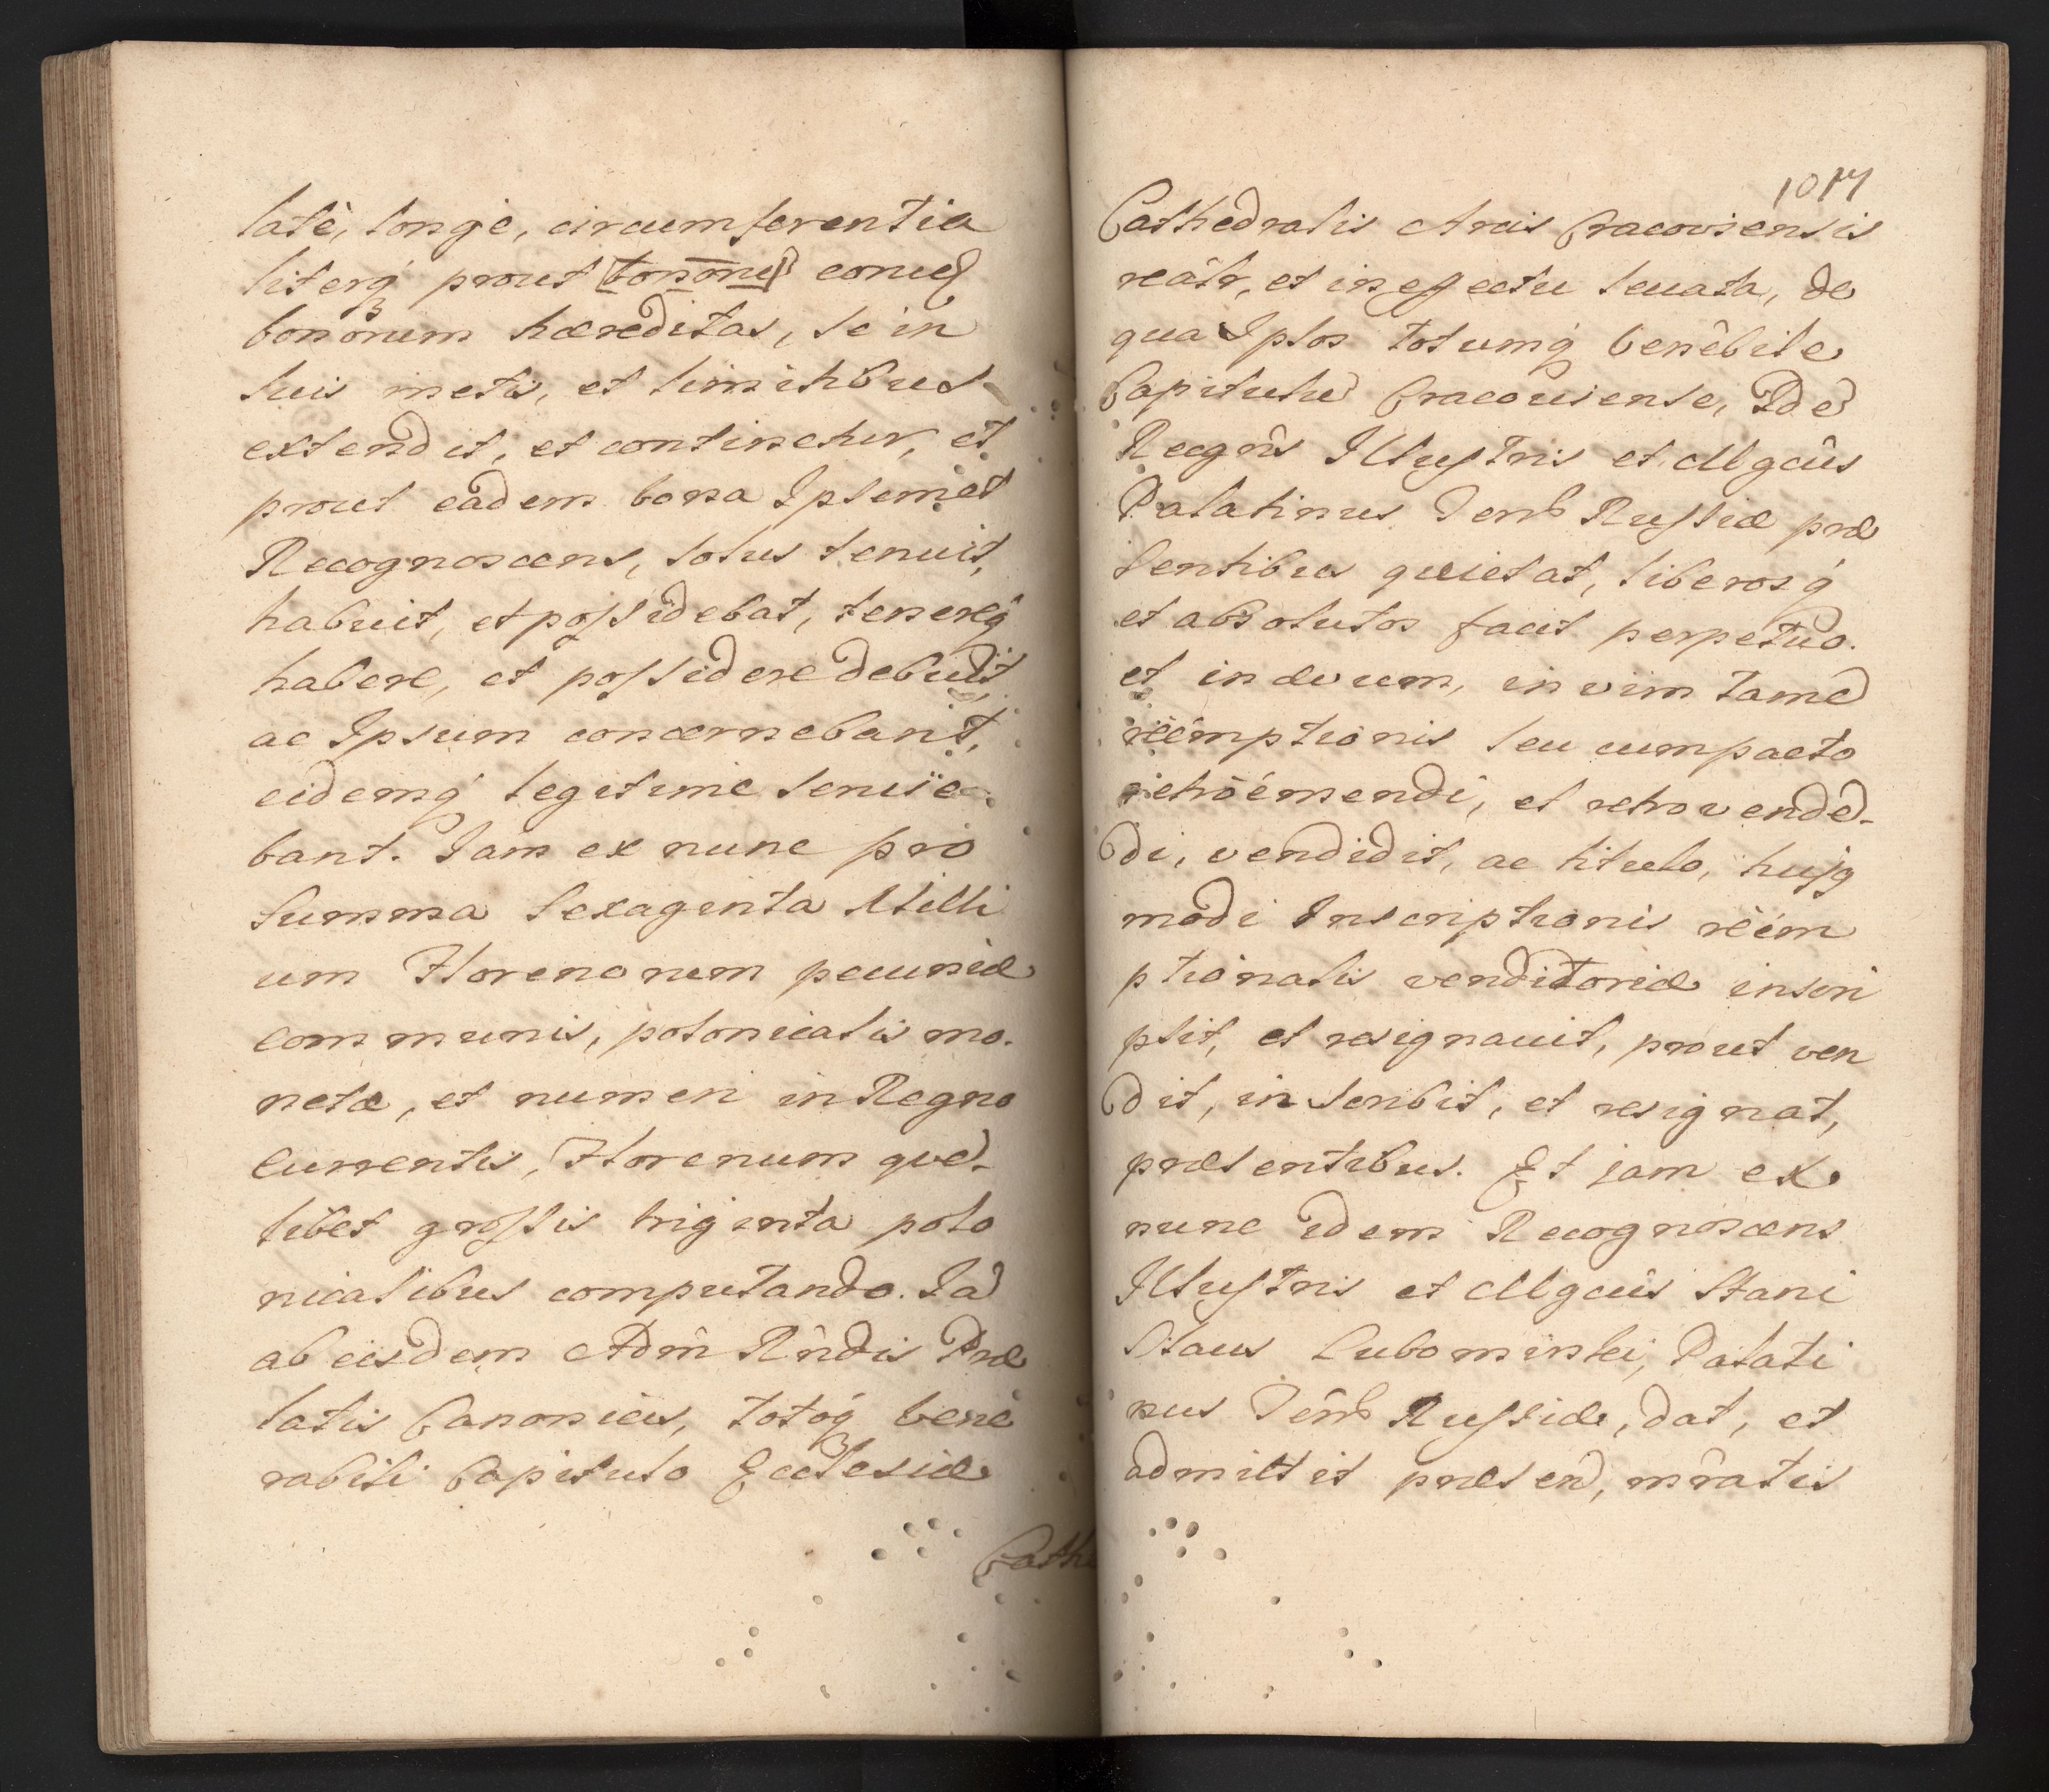 latè, longè, circumferentia
literq́ prout [bonorũ] eorued
bonorum hæreditas, se in
suis metis, et limitibus
extendit, et continetur, et
prout eadem bona Ipsemet
Recognoscens, solus tenuit,
habuit, et possidebat, tenereq́
habere, et possidere debuit,
ac Ipsum concernebant,
eidemq́ legitime seruie-
bant. Jam ex nunc pro
Summa Sexaginta Milli
um Florenorum pecuniæ
communis, polonicalis mo-
netæ, et numeri in Regno
Currentis, Florenum quẽ-
libet grossis triginta polo
nicalibus computando. Jã
ab eisdem Adm̂ Rñdis Præ
latis Canonicis, totoq́ vene
rabili Capitulo Ecclesiæ
Cathe
1017
Cathedralis Arcis Cracoviensis
reâlr, et in effectu leuata, de
qua Ipsos totumq́ venêbile
Capitulũ Cracouiense, Idẽ
Recgñs Illustris et Mgcûs
Palatinus Tenr̃ Russiæ præ
sentibus quietat, liberosq́
et absolutos facit perpetuo.
et in æuum, in vim tamẽ
reêmptionis seu cum pacto
retroémendi, et retrovendẽ-
di, vendidit, ac titulo, hujq
modi Inscriptionis reém
ptionalis venditoriæ inscri
psit, et resignauit, prout ven
dit, inscribit, et resignat,
præsentibus. Et jam ex
nunc idem Recognoscens
Illustris et Mgcûs Stani
slaus Lubomirski, Palati
nus Tenr̃ Russiæ, dat, et
admittit præsen̄, m̂ratis